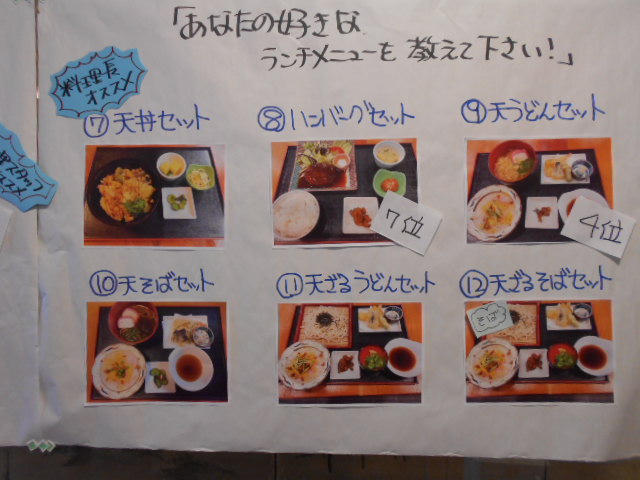 「あなたの好きな
ランチメニューを 教えて下さい!」
料理長
オススメ
⑦天丼セット
⑧ハンバーグセット
⑨天うどんセット
スタッフ
7位
4位
⑩天そばセット
⑪天ざるうどんセット
⑫天ざるそばセット
そば